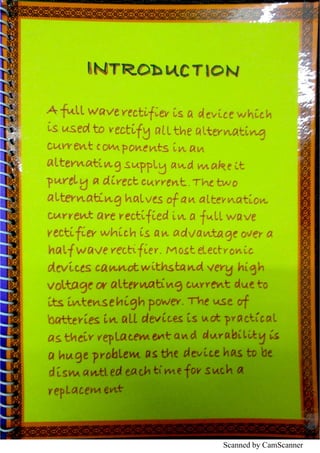 INTRODUCTION
A full wave rectifier is a device which
is used to rectify all the alternating
current components in an
alternating supply and make it
purely a direct current. The two
alternating halves of an alternation
current are rectified in a full wave
rectifier which is an advantage over a
half wave rectifier. Most electronic
devices cannot withstand very high
voltage or alternating current due to
its intense high power. The use of
batteries in all devices is not practical
as their replacement and durability is
a huge problem as the device has to be
dismantled each time for such a
replacement
Scanned by CamScanner